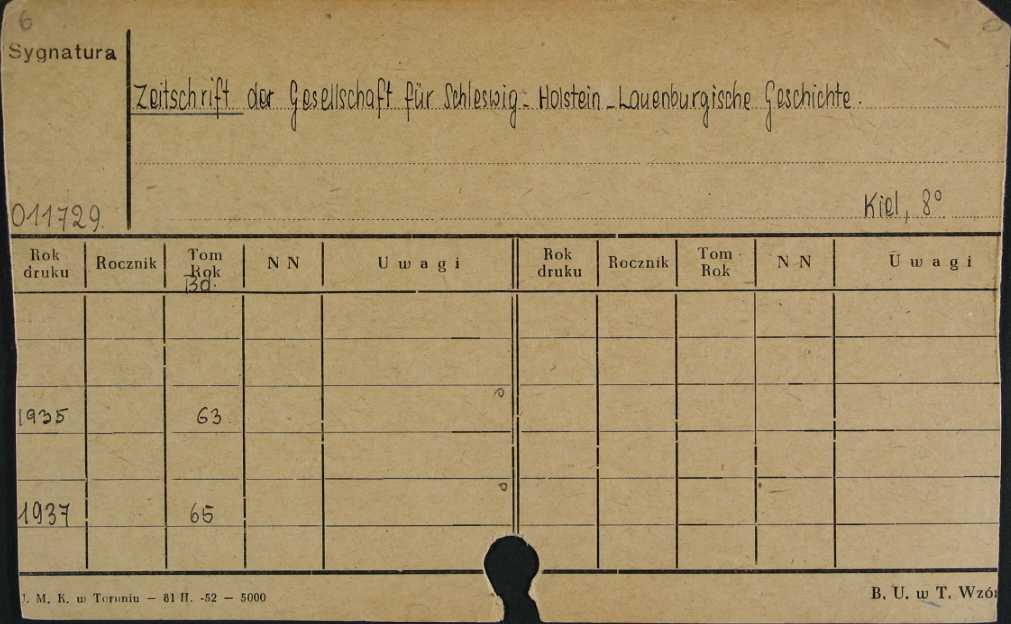 6
Sygnatura
Zeitschrift der Gesellschaft für Schleswig-Holstein-Lauenburgische Geschichte.
011729.
Kiel, 8°
Rok druku Rocznik Tom Rok Bd. N N Uwagi Rok druku Rocznik Tom Rok N N Uwagi
1935 63
1937 65
J. M. K. w Toruniu — 81 II. -52 — 5000 B. U. w T. Wzór